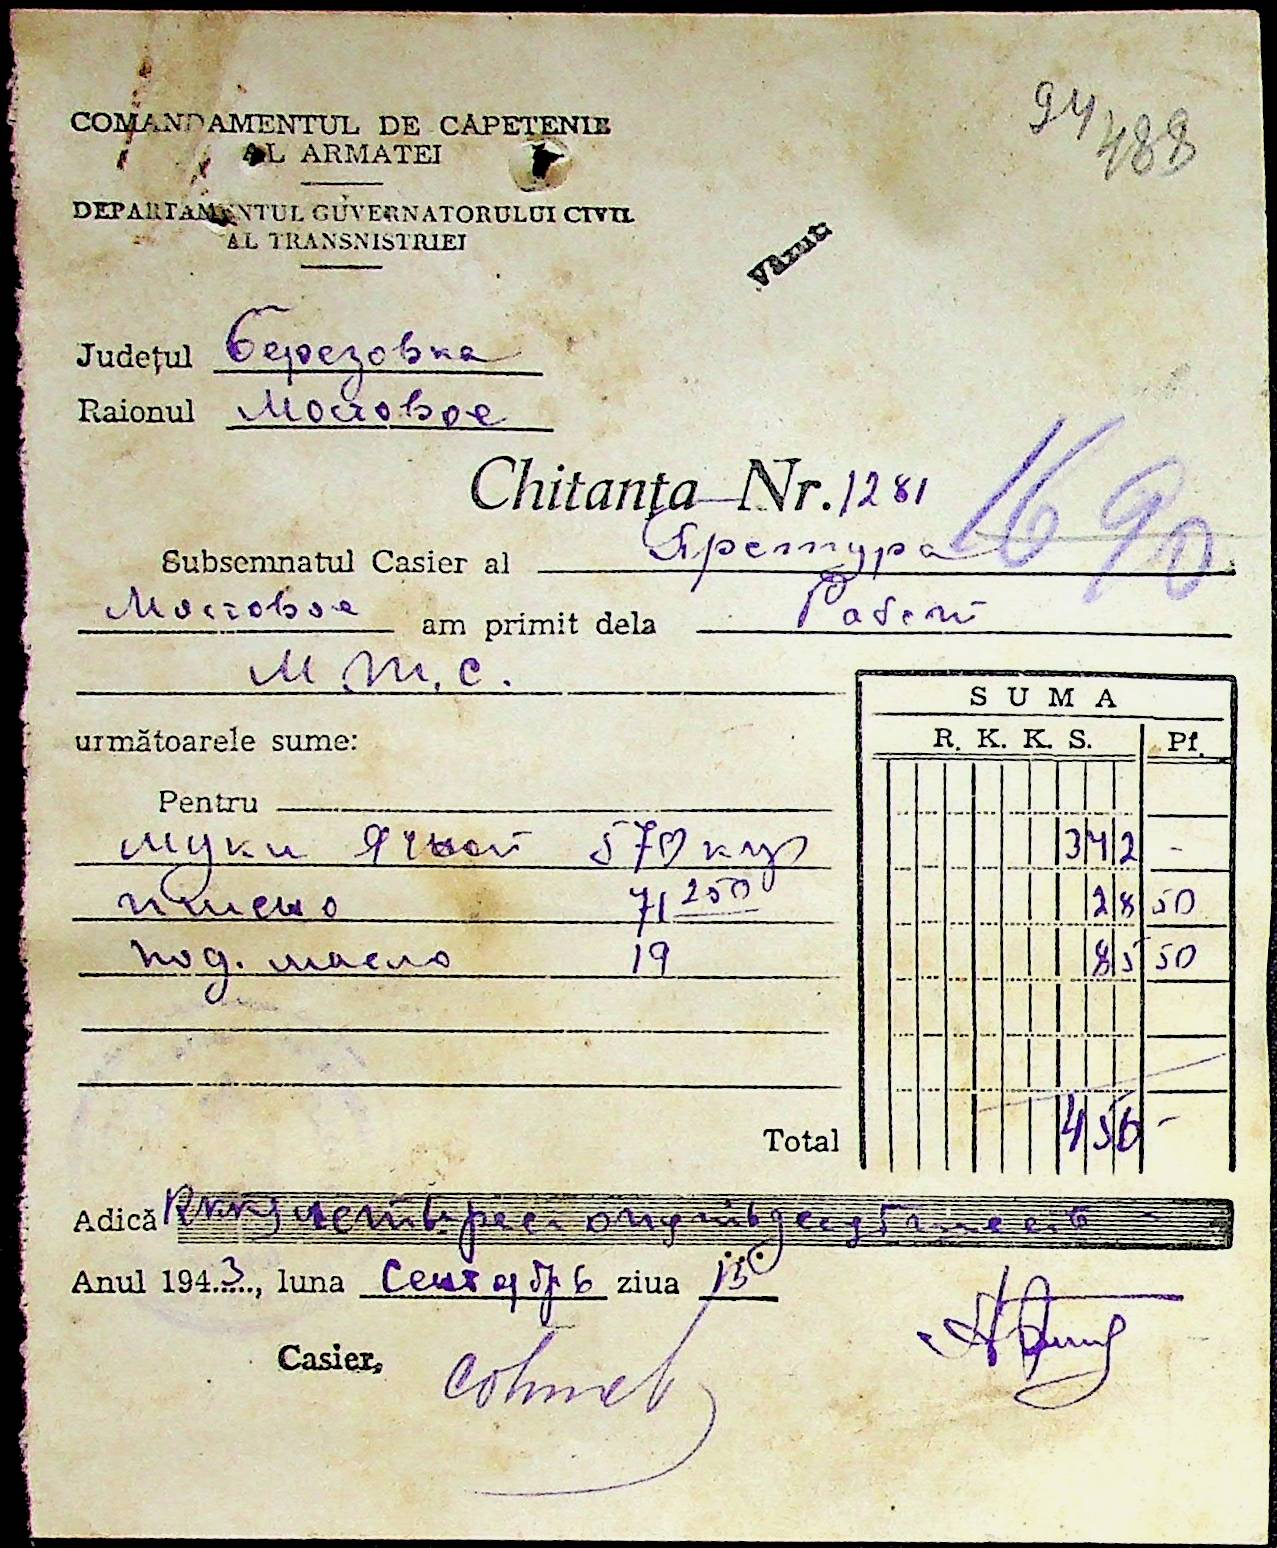 94
488
COMANDAMENTUL DE CAPETENIE
AL ARMATEI
DEPARTAMENTUL GUVERNATORULUI CIVIL
AL TRANSNISTRIEI
Văzut:
Județul Березовка
Raionul Мостовое
Chitanța Nr. 1281
1690
Subsemnatul Casier al Претура
Мостовое am primit dela Рабоч
М.Т.С.
următoarele sume:
SUMA
R. K. K. S. Pf.
Pentru
муки Ячной 570 кгр 342 -
пшено 71 250 28 50
под. масло 19 85 50
Total 456 -
Adică четыреста пятьдесят шесть -
Anul 1943..., luna Сентябрь ziua 15
Casier,